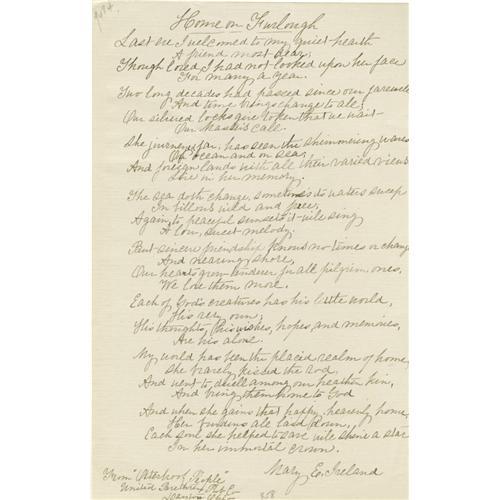 Home on Furlough
Last eve I welcomed to my quiet hearth
A friend most dear;
Though loved I had not looked upon her face
For many a year.
Two long decades had passed since our farewell
And time brings change to all;
Our silvered locks give token that we wait
Our Master's call.
She journeyed far, has seen the shimmering waves
On ocean and on sea;
And foreign lands with all their varied views
Live in her memory.
The sea doth change, sometimes its waters sweep
In billows wild and free;
Again, to peaceful sunset it will sing
A low, sweet melody.
But sincere friendship knows no times or change
And nearing shore,
Our hearts grow tenderer for all pilgrim ones,
We love them more.
Each of God's creatures has his little world,
His very own;
His thoughts, his wishes, hopes, and memories,
Are his alone.
My world has been the placid realm of home,
She bravely kissed the rod,
And went to dwell among our heathen kin,
And bring them home to God
And when she gains that happy, heavenly home,
Her burdens all laid down,
Each soul she helped to save will shine a star
In her immortal crown.
Mary E. Ireland
From
United Brethren Pub.
Dayton Ohio